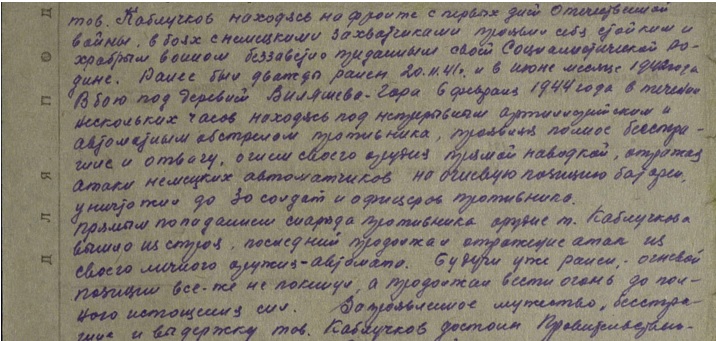 тов. Каблучков находясь на фронте с первых дней Отечественной
войны, в боях с немецкими захватчиками проявил себя стойким и
храбрым воином беззаветно преданным своей Социалистической Ро-
дине. Ранее был дважды ранен 20.11.41г. и в июне месяце 1942 года
В бою под деревней Виляшева-Гора в феврале 1944 года в течении
нескольких часов находясь под непрерывным артиллерийским и
автоматным обстрелом противника, проявляя полное бесстра-
шие и отвагу, огнем своего орудия прямой наводкой, отражая
атаки немецких автоматчиков на огневую позицию батареи,
уничтожил до 30 солдат и офицеров противника.
прямым попаданием снаряда противника орудие т. Каблучкова
вышло из строя, последний продолжал отражение атак из
своего личного оружия-автомата. Будучи уже ранен, огневой
позиции все-же не покинул, а продолжал вести огонь до пол-
ного истощения сил. За проявленное мужество, бесстра-
шие и выдержку тов. Каблучков достоин Правительствен-
ДЛЯ ПОД